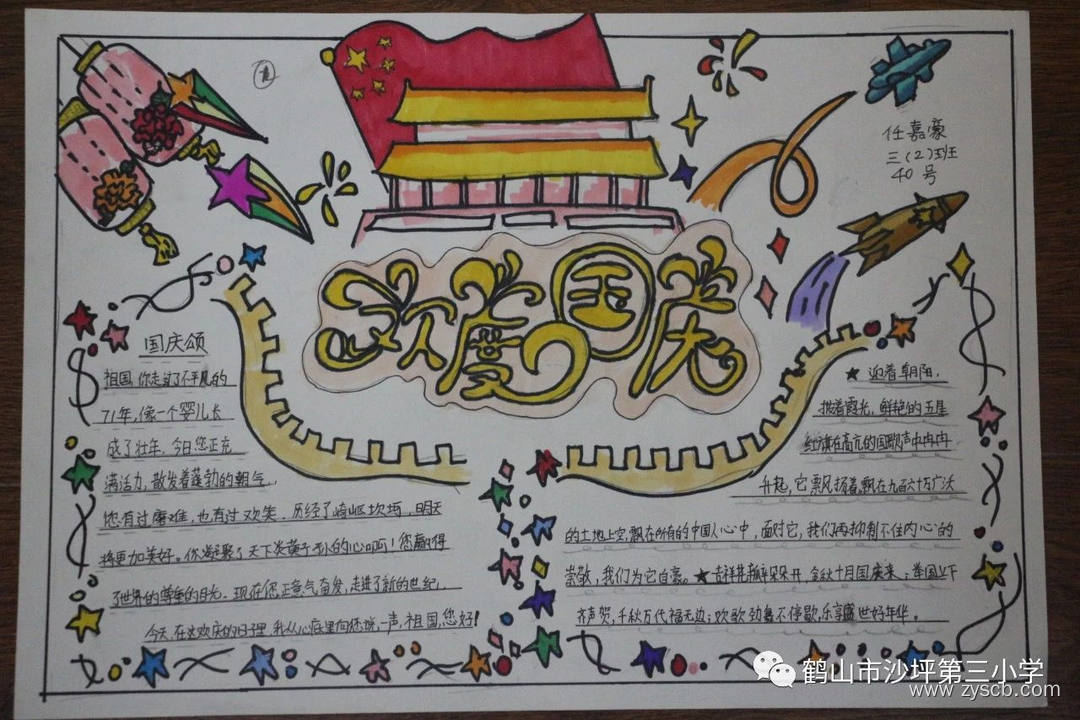 欢度国庆
任嘉豪
三(2)班
40号
国庆颂
祖国,你走过了不平凡的
71年,像一个婴儿长
成了壮年,今日您正充
满活力,散发着蓬勃的朝气,
您有过磨难,也有过欢笑,历经了崎岖坎坷,明天
将更加美好。你凝聚了天下炎黄子孙的心啊!您赢得
了世界的尊重的目光,现在您正意气奋发,走进了新的世纪,
今天,在这欢庆的日子里,我从心底里向您说一声,祖国,您好!
★迎着朝阳,
披着霞光,鲜艳的五星
红旗在高亢的国歌声中冉冉
升起,它飘扬着,飘在九百六十万广沃
的土地上空,飘在所有的中国人心中,面对它,我们再抑制不住内心的
崇敬,我们为它自豪。★吉祥花瓣朵朵开,金秋十月国庆来;举国上下
齐声贺,千秋万代福无边;欢歌劲舞不停歇,乐享盛世好年华。
鹤山市沙坪第三小学
www.zyscb.com